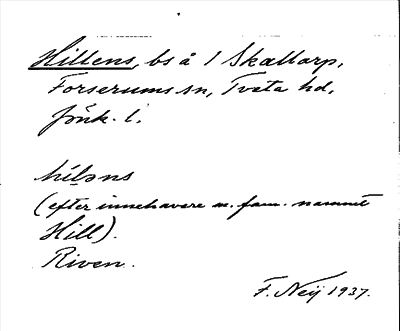 Hillens, bs å 1 Skallarp,
Forserums sn, Tveta hd,
Jönk. l.
hílǝns
(efter innehavare m. fam. namnet
Hill).
Riven.
F. Neij 1937.